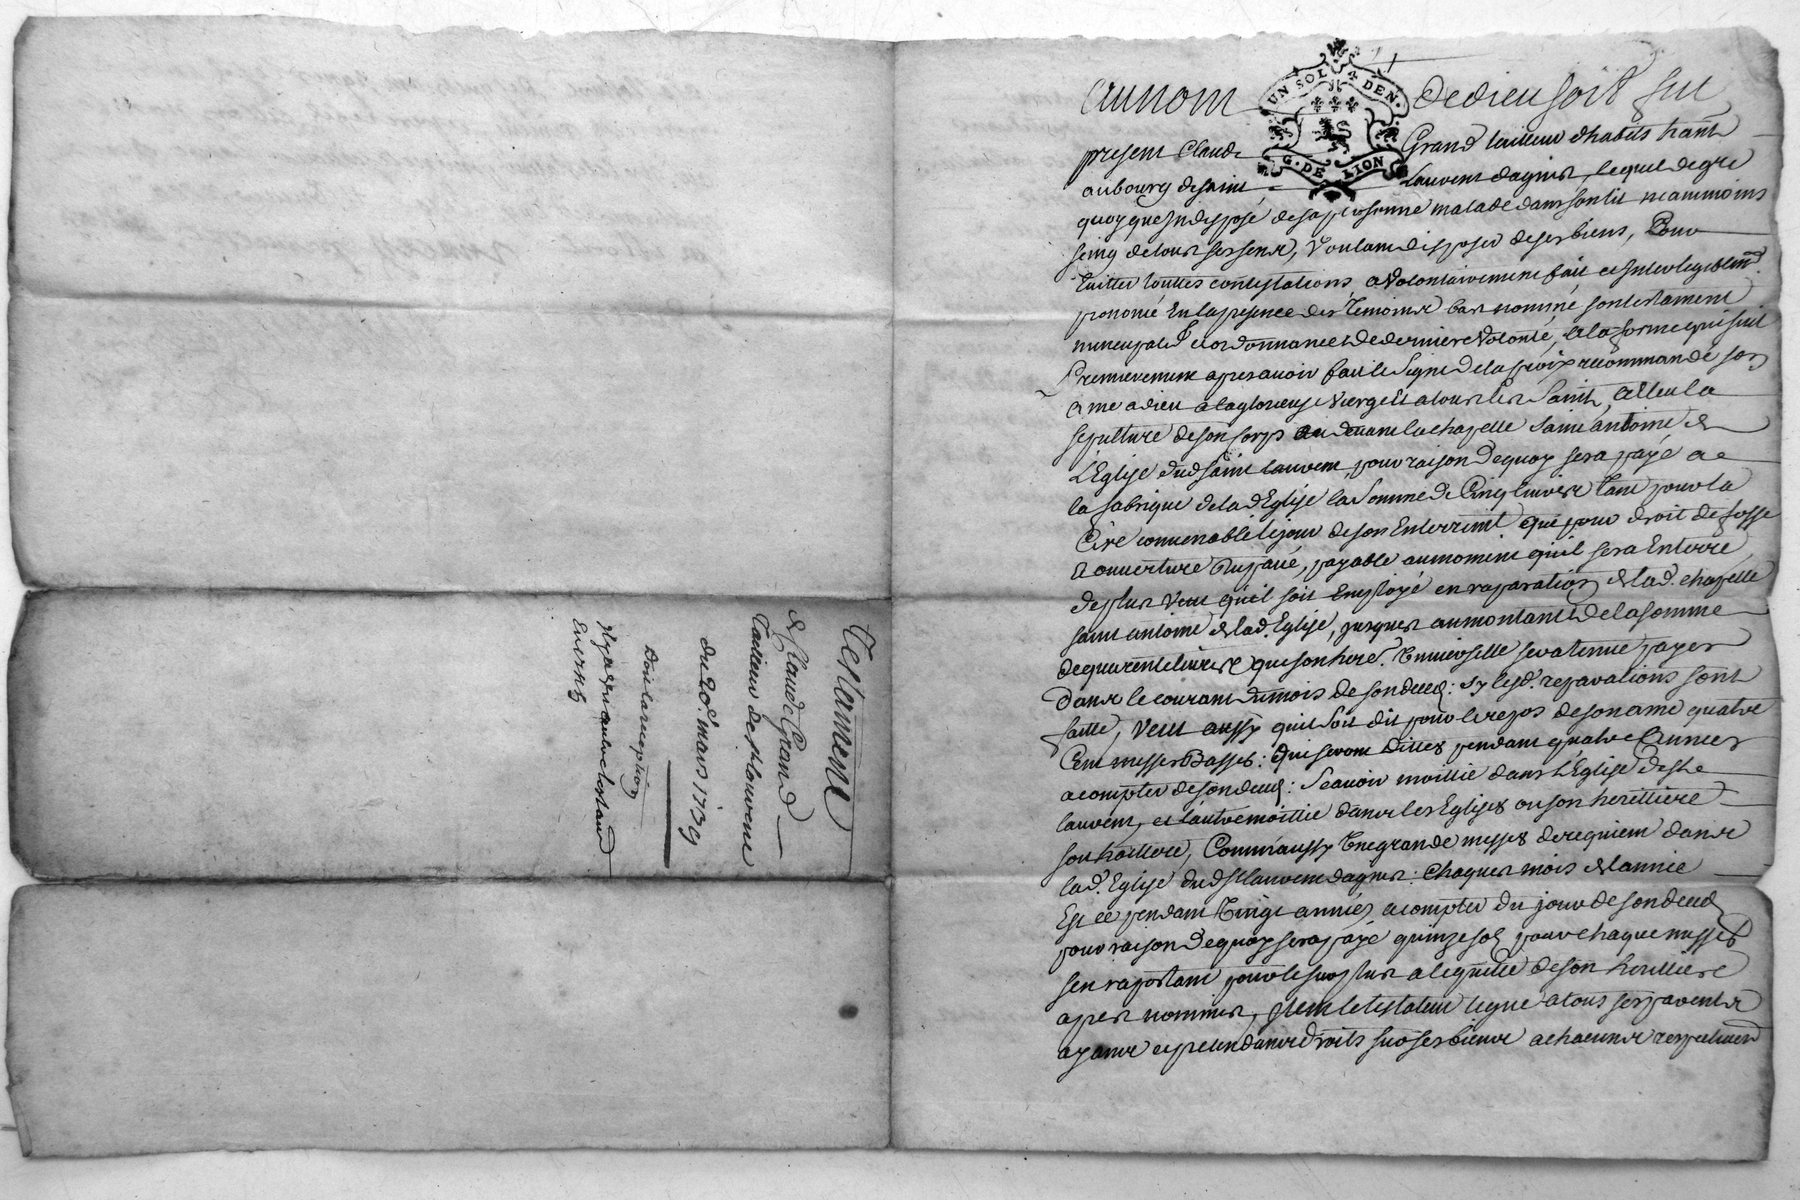 Testament
de Claude Grand
Tailleur de St laurent
du 20e. mars 1739
Dont la reception
UN SOL 4 DEN.
G. DE LION
Au nom de dieu soit fut
present Claude Grand tailleur d'habits hant
au bourg de saint Laurent dagnis, lequel de gré
quoy que Indisposé de sa personne malade dans son lit neammoins
saing de tous ses sens, Voulant disposer de ses biens, Pour
Euitter touttes contestations, a Volontairement fait et Intelegiblemt.
prononcé En la presence des temoins bas nommé son testament
nuncupatif et ordonnance de derniere Volonté, et la forme qui suit
Premierement apres auoir fait le Signe de la Croix recommandé son
ame a dieu a la glorieuse Vierge et a tous les Saints, a Elleu la
sepulture de son corps au deuant la chapelle saint antoine de
L'Eglise dud saint laurent, pour raison dequoy sera payé a
la fabrique de lad Eglise la Somme de Cinq liures tant pour la
Cire conuenable le jour de son Enterremt que pour droit de fosse
et ouuerture du paué, payable au moment qu'il sera Enterré
de plus Veut qu'il soit Employé en raparation de lad. chapelle
saint antoine de lad. Eglise, jusques au montant de la somme
de quarente liures que son here. Uniuerselle sera tenue payer
Dans le courant du mois de son deces: sy lesd. reparations sont
faitte, Veut aussy qu'il soit dit pour le repos de son ame quatre
Cent messes Basses: qui seront dittes pendant quatre années
a compter de son deces: Scauoir moittié dans l'Eglise de St
laurent, et l'autre moittié dans les Eglises ou son herittiere
souhaittera, Comm'aussy Une grande messes de requiem dans
lad. Eglise dud St laurent dagnis: Chaques mois de lannée
Et ce pendant Vingt années a compter du jour de son deces
pour raison dequoy sera payé quinze sols pour chaque messes
s'en raportant pour le surplus a lequitté de son herittiere
apres nommés, Item le testateur legue a tous ses parents
ayants et pretendants droits sur ses biens a chacuns respectiuemt